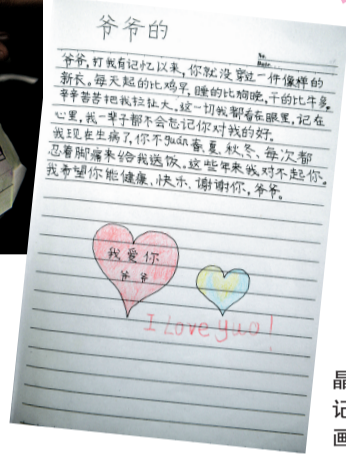 爷爷的
No.
Date.
爷爷,打我有记忆以来,你就没穿过一件像样的
新长。每天起的比鸡早,睡的比狗晚,干的比牛多。
辛辛苦苦把我拉扯大。这一切我都看在眼里,记在
心里,我一辈子都不会忘记你对我的好。
我现在生病了,你不guǎn春夏秋冬、每次都
忍着脚痛来给我送饭。这些年来我对不起你。
我希望你能健康、快乐、谢谢你,爷爷。
我爱你
爷爷
I Love yuo!
晶
记
画